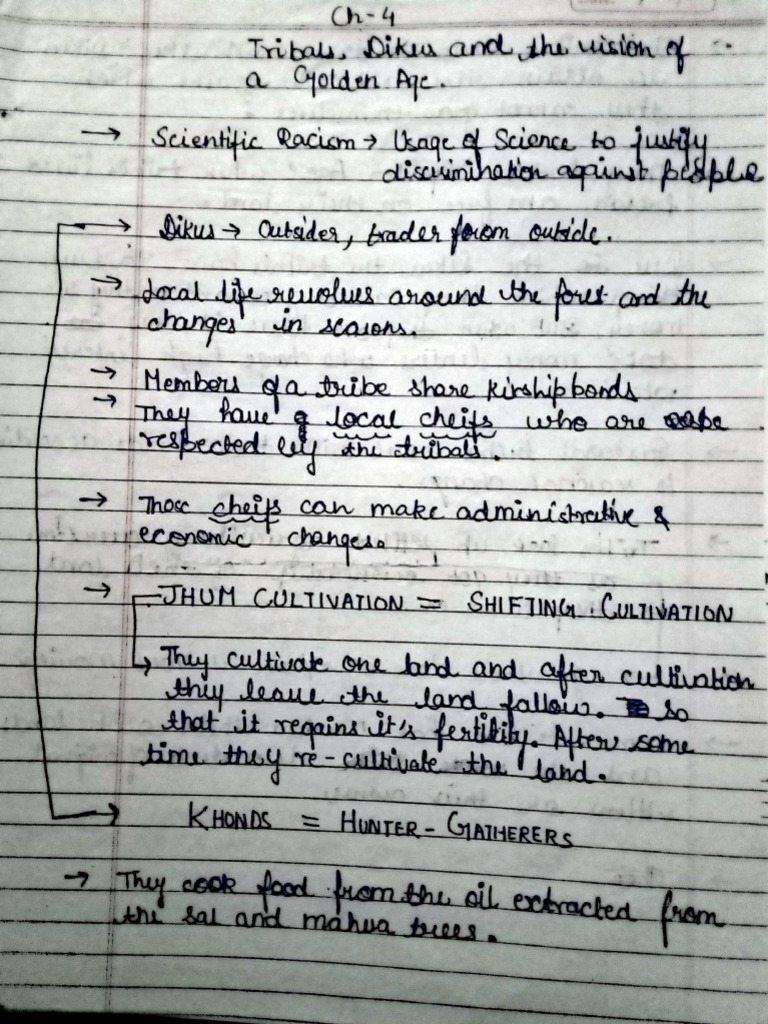 Ch-4
Tribals, Dikus and the vision of
a Golden Age.
→ Scientific Racism → Usage of Science to justify
discrimination against people
→ Dikus → Outsider, trader from outside.
→ Local life revolves around the forest and the
changes in seasons.
→ Members of a tribe share kinship bonds
→ They have local cheifs who are
respected by the tribals.
→ Those cheifs can make administrative &
economic changes.
→ JHUM CULTIVATION = SHIFTING CULTIVATION
↳ They cultivate one land and after cultivation
they leave the land fallow. so
that it regains it's fertility. After some
time they re-cultivate the land.
→ KHONDS = HUNTER-GATHERERS
→ They cook food from the oil extracted from
the sal and mahua trees.